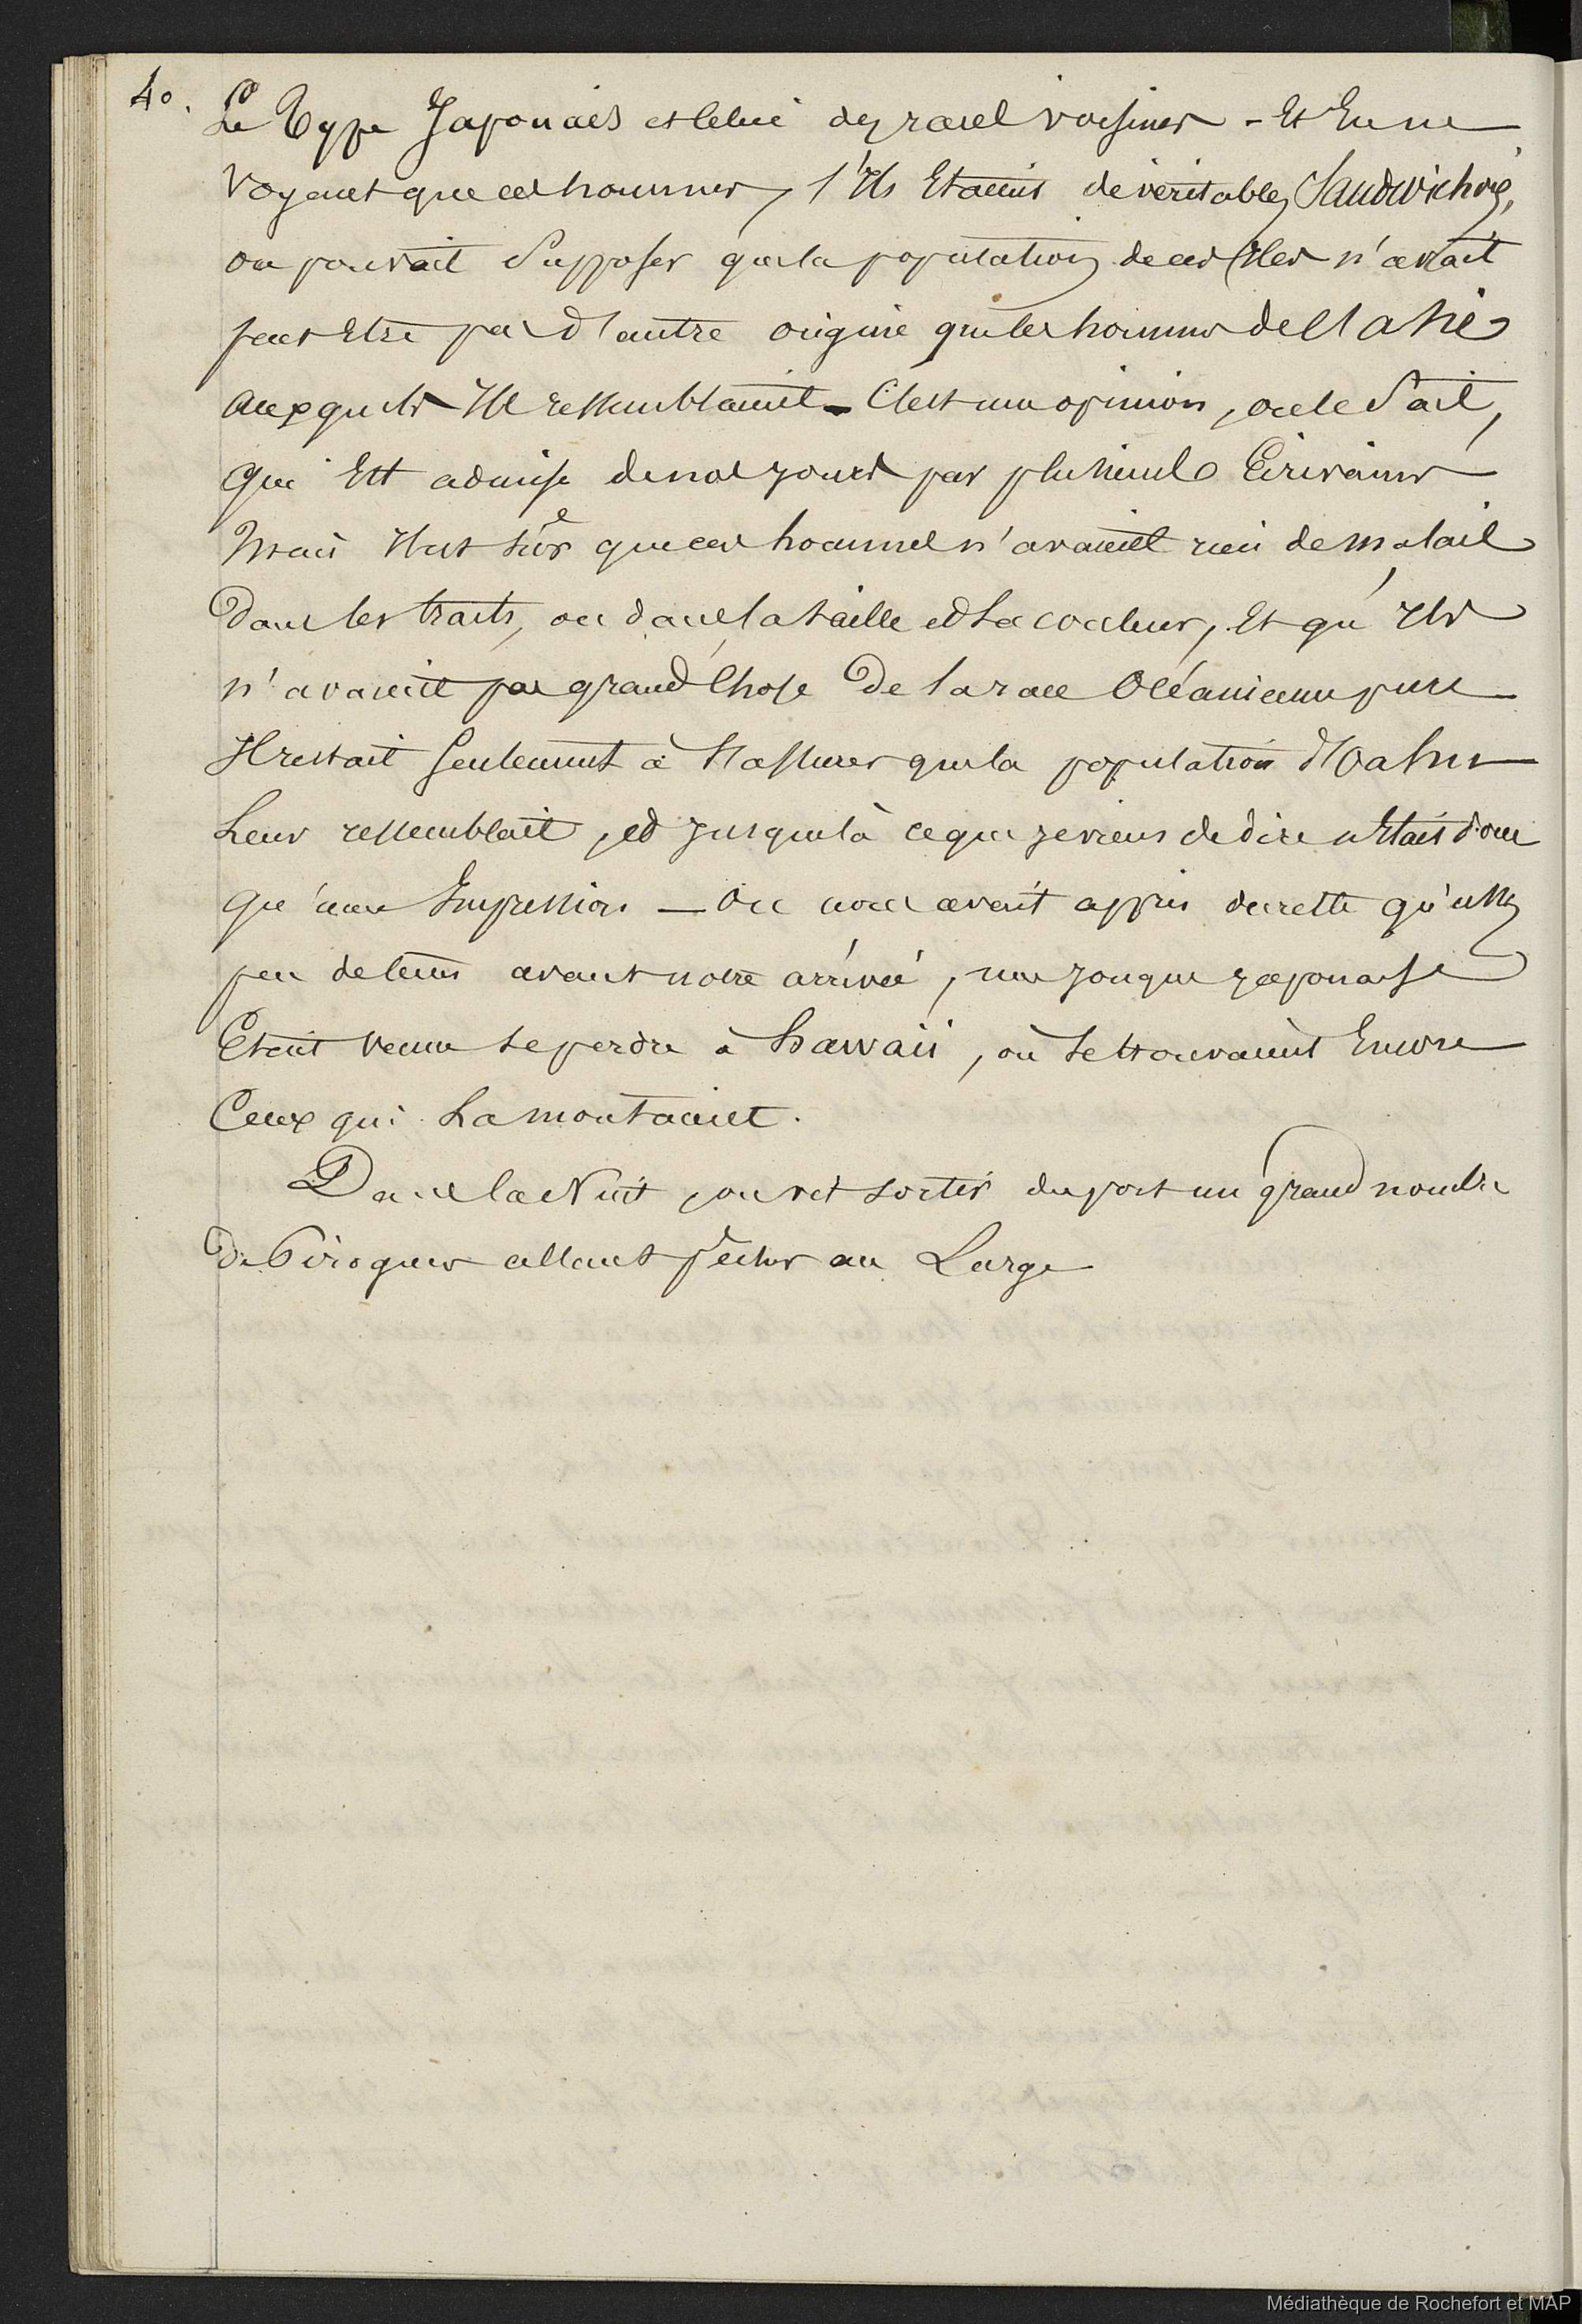 40.
Le Type Japonais et celui des races voisines - Et En ne
Voyant que ces hommes, s'Ils Etaient de véritables Sandwichois,
on pouvait Supposer que la population de ces Iles n'avait
peut Etre pas d'autre origine que les hommes de l'asie
auxquels Ils ressemblaient - C'est une opinion, on le Sait,
qui Est admise de nos jours par plusieurs Ecrivains
Mais Il est sûr que ces hommes n'avaient rien de malais
Dans les traits, ou dans la taille et la couleur, Et qu'Ils
n'avaient pas grand Chose De la race Océanienne pure
Il restait Seulement à s'assurer que la population d'Oahu
Leur ressemblait, et jusque là ce que je viens de dire n'Etait donc
qu'une Impression — On nous avait appris du reste qu'assez
peu de tems avant notre arrivée, une jonque japonaise
Etait venue se perdre à hawaii, où se trouvaient Encore
Ceux qui la montaient.
Dans la Nuit, on vit sortir du port un grand nombre
de Pirogues allant pêcher au Large
Médiathèque de Rochefort et MAP